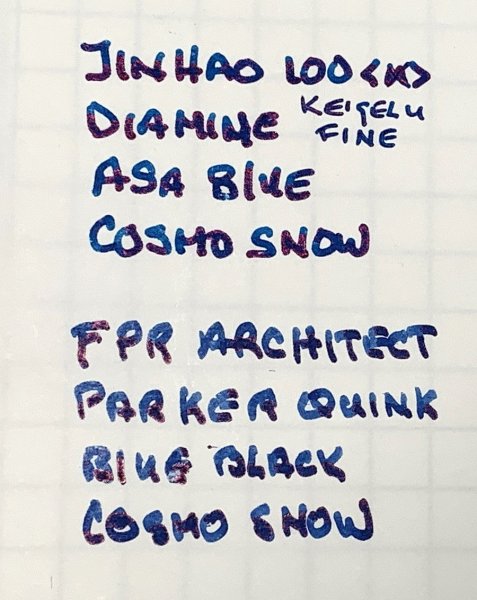 JINHAO 100 <M>
DIAMINE KEIGELU
FINE
ASA BLUE
COSMO SNOW
FPR ARCHITECT
PARKER QUINK
BLUE BLACK
COSMO SNOW